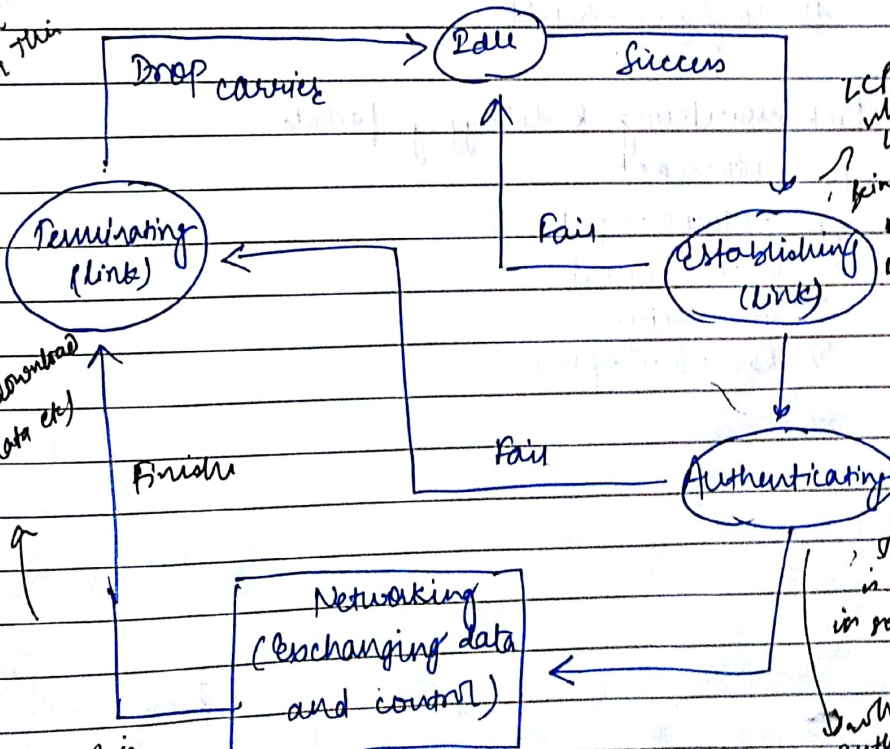 Idle
Drop carrier
Success
LCP
Terminating
(Link)
Fail
Establishing
(Link)
download
data etc)
Finish
Fail
Authenticating
Networking
(exchanging data
and control)
is
in